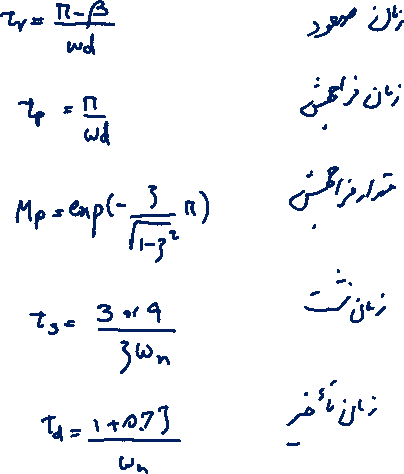 t_r = (π-β)/ωd زمان صعود
t_p = π/ωd زمان فراجهش
M_p = exp(-ζ/√(1-ζ²) π) مقدار فراجهش
t_s = (3 or 4)/(ζω_n) زمان نشست
t_d = (1+0.7ζ)/ω_n زمان تأخیر